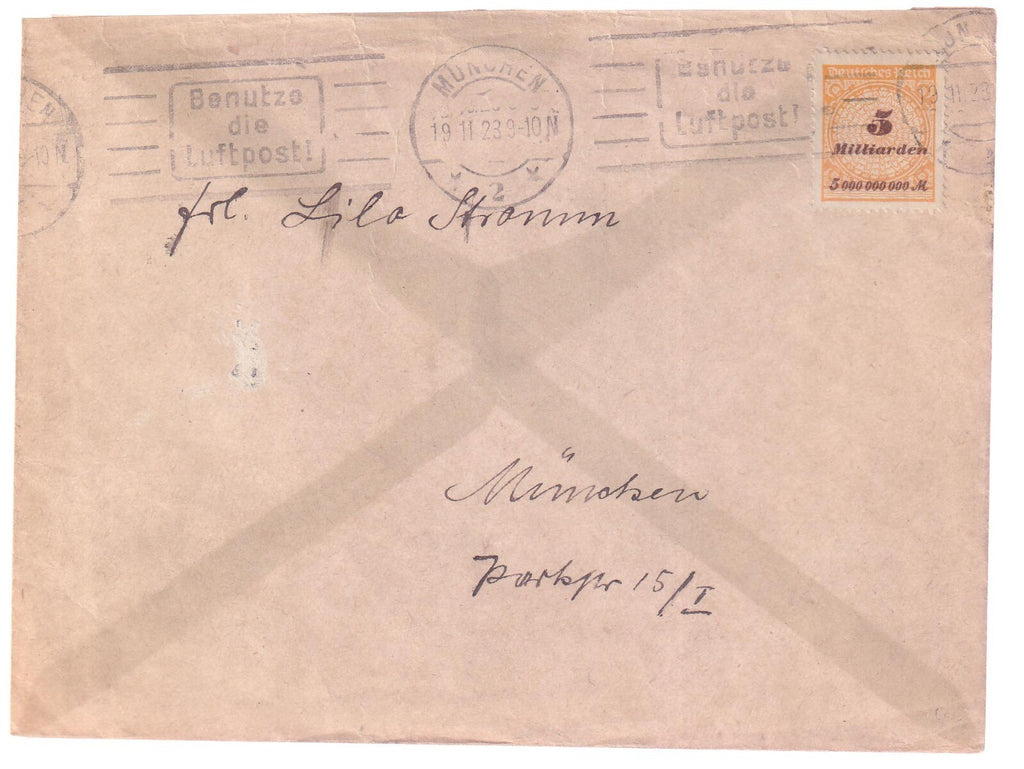 MÜNCHEN
19 11 23 9-10 N
2
Benutze
die
Luftpost!
Benutze
die
Luftpost!
Deutsches Reich
5
Milliarden
5 000 000 000 M
frl. Lilo Stramm
München
Parkstr 15/I